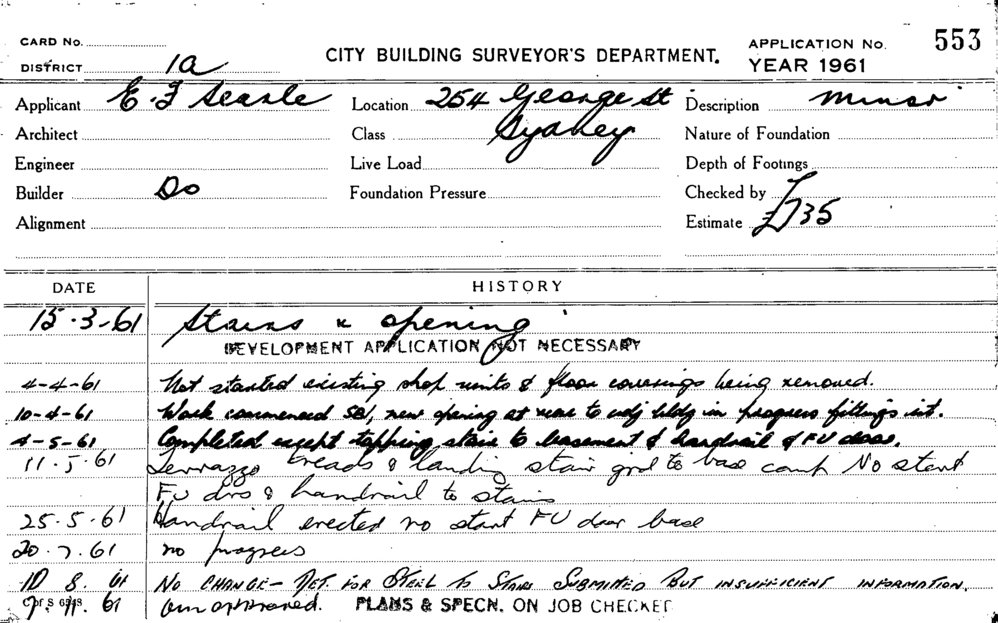 CARD No.
DISTRICT 1a
CITY BUILDING SURVEYOR'S DEPARTMENT.
APPLICATION No. 553
YEAR 1961
Applicant E. J Searle
Location 254 George St
Sydney
Description minor
Architect
Class
Nature of Foundation
Engineer
Live Load
Depth of Footings
Builder Do
Foundation Pressure
Checked by
Alignment
Estimate £735
DATE HISTORY
15.3.61 Stairs & opening
DEVELOPMENT APPLICATION NOT NECESSARY
4-4-61 Not started existing shop units & floor coverings being removed.
10-4-61 Work commenced new opening at rear to adj bldg in progress fittings
4-5-61 Completed except topping stair to basement & handrail & FU door.
11.5.61 Terrazzo treads & landing stair grd to base comp No start
FU drs & handrail to stairs
25.5.61 Handrail erected no start FU door base
20.7.61 no progress
10 8. 61 NO CHANGE - DET. FOR STEEL TO STAIRS SUBMITTED BUT INSUFFICIENT INFORMATION.
7. 11. 61 approved. PLANS & SPECN. ON JOB CHECKED